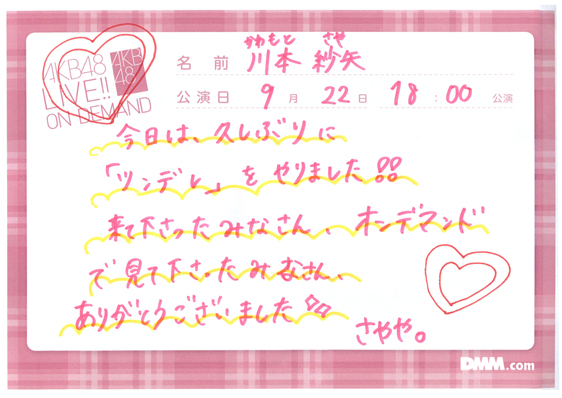 AKB48
LIVE!!
ON DEMAND
AKB
48
かわもと さや
名前 川本 紗矢
公演日 9月 22日 18:00 公演
今日は、久しぶりに
「ツンデレ」を やりました!!
来て下さったみなさん、オンデマンド
で見て下さったみなさん、
ありがとうございました!!
さやや。
DMM.com